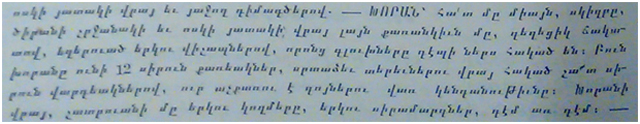 ոսկի յատակի վրայ եւ յաջող դիմագծերով. — ԽՈՐԱՆ՝ Հա՛տ մը միայն, սկիզբը,
ծիրանի շրջանակի եւ ոսկի յատակի վրայ լայն քառանկիւն մը, գեղեցիկ ճակա-
տով, եզերուած երկու վիշապներով, որոնց գլուխները դէպի ներս հակած են։ Բուն
խորանը ունի 12 սիրուն քառեակներ, արտաձեւ տերեւներու վրայ հակած շա՜տ սի-
րուն վարդեակներով, ուր աչքառու է գոյներու վառ կենդանութիւնը։ Խորանի
վրայ, շատրուանի մը երկու կողմերը, երկու սիրամարգներ, դէմ առ դէմ։ —